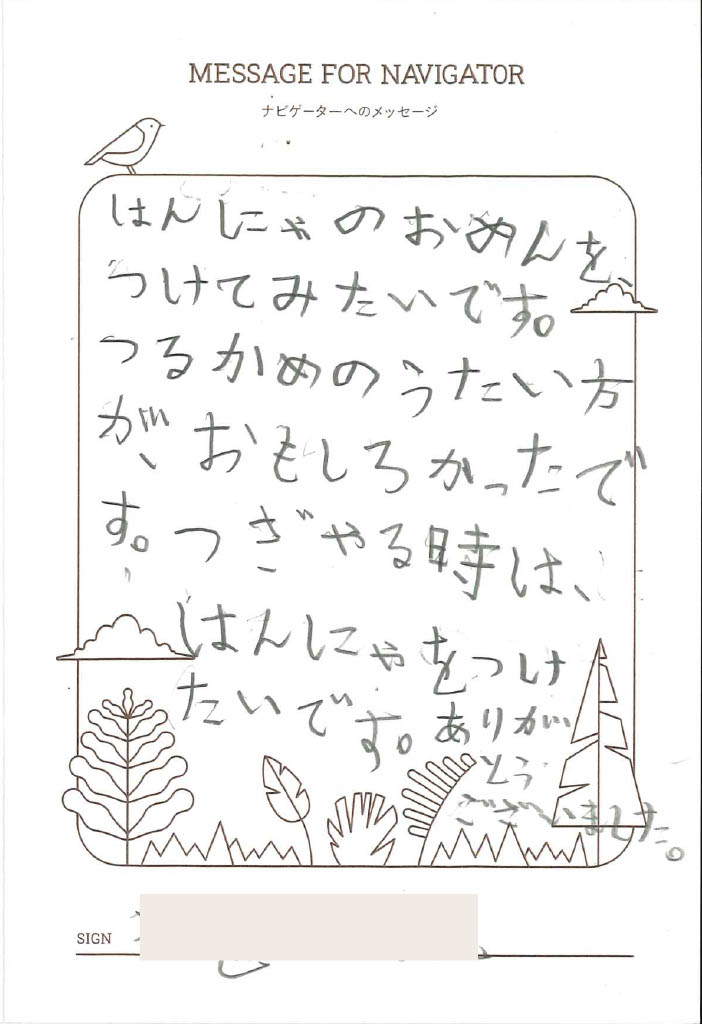 MESSAGE FOR NAVIGATOR
ナビゲーターへのメッセージ
はんにゃのおめんを、
つけてみたいです。
つるかめのうたい方
が、おもしろかったで
す。つぎやる時は、
はんにゃをつけ
たいです。ありがい
とう
ございました。
SIGN